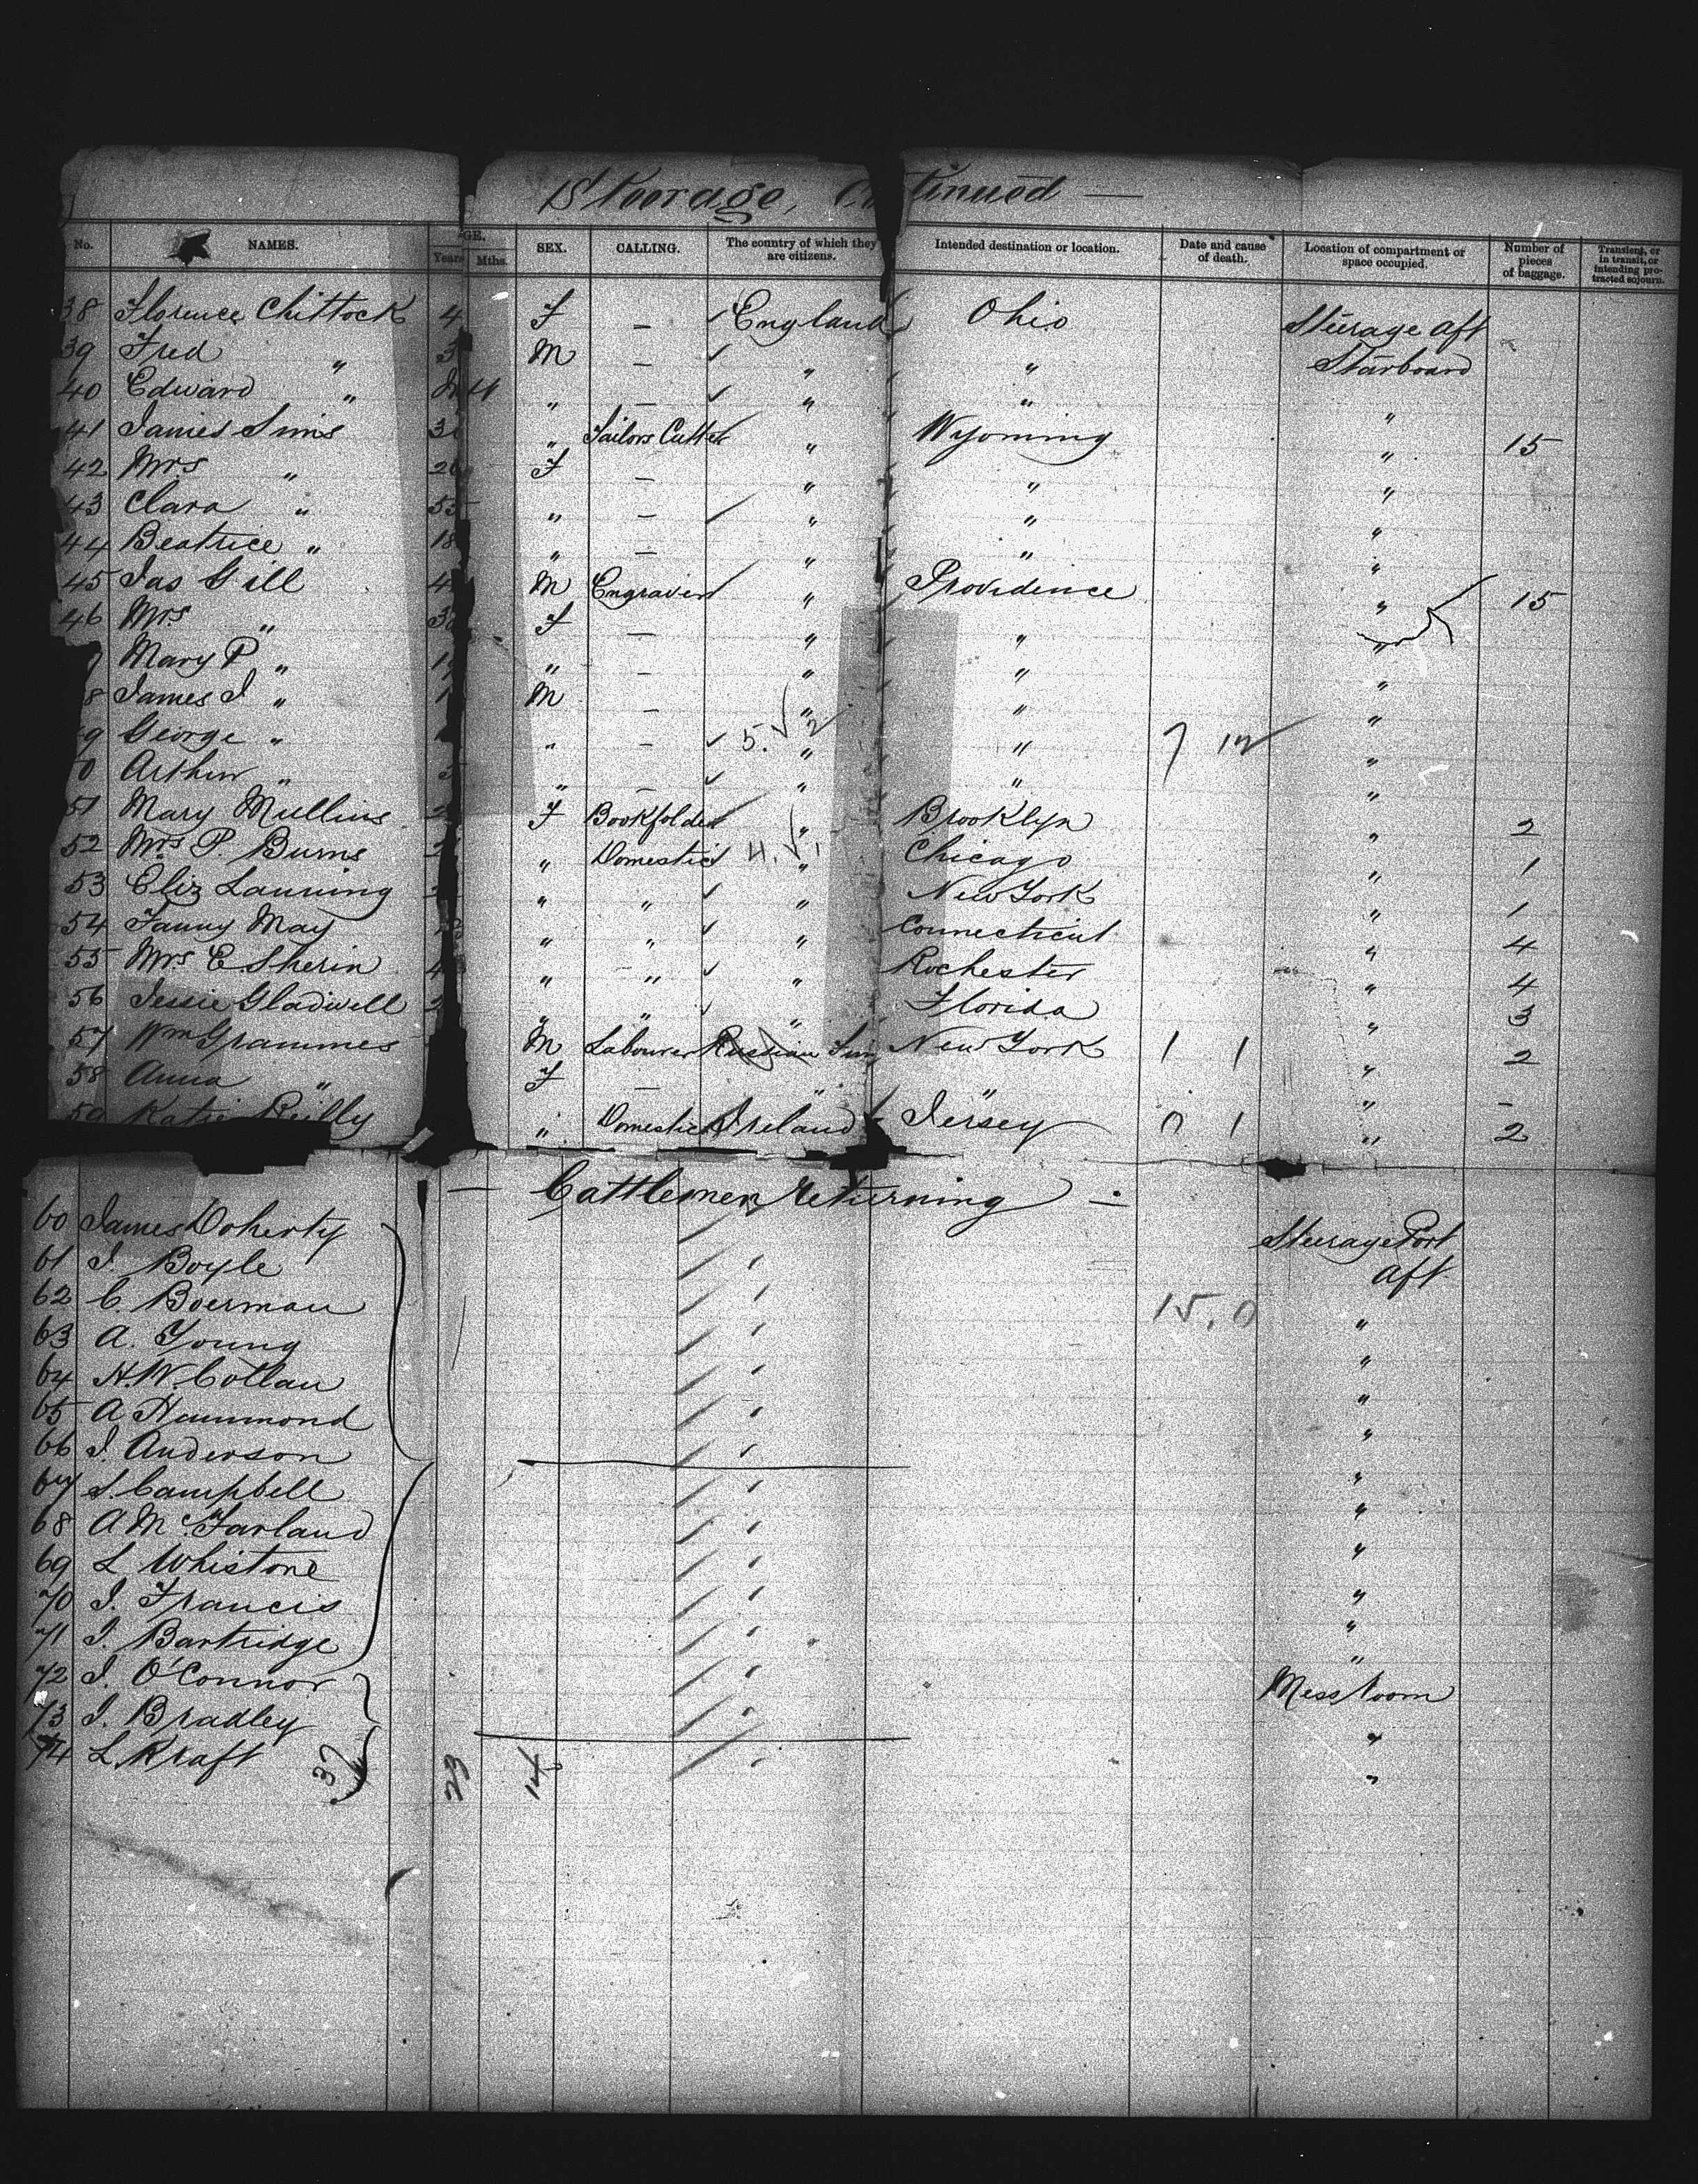 Steerage, Continued —
No. NAMES. AGE. Years Mths. SEX. CALLING. The country of which they are citizens. Intended destination or location. Date and cause of death. Location of compartment or space occupied. Number of pieces of baggage. Transient, or in transit, or intending protracted sojourn.
38 Florence Chittock 4 F — England Ohio Steerage aft
39 Fred " 3 M — " " Starboard
40 Edward " " — " " "
41 James Sims " Tailors Cutter " Wyoming " 15
42 Mrs " F — " " "
43 Clara " " — " " "
44 Beatrice " 18 " — " " "
45 Jas Gill M Engraver " Providence " 15
46 Mrs " F — " " "
Mary P " " — " " "
8 James J " M — " " "
9 George " " — 5. 2 " " 7 12 "
0 Arthur " " — " " "
51 Mary Mullins F Bookfolder " Brooklyn " 2
52 Mrs P. Burns " Domestic 4. 1 " Chicago " 1
53 Eliz Lanning " " " New York " 1
54 Fanny May " " " Connecticut " 4
55 Mrs E Sherin " " " Rochester " 4
56 Jessie Gladwell " " " Florida " 3
57 Wm Grammes M Labourer Russian New York 1 1 " 2
58 Anna " F — " " " –
59 Katie Reilly " Domestic Ireland Jersey 0 1 " 2
— Cattlemen Returning —
60 James Doherty Steerage Port
61 J. Boyle Aft.
62 C. Boerman 15, 0 "
63 A. Young "
64 H.W. Collan "
65 A Hammond "
66 J. Anderson "
67 S. Campbell "
68 A McFarland "
69 L Whistone "
70 J. Francis "
71 J. Bartridge "
72 J. O'Connor Mess Room
73 J. Bradley "
74 L. Kraft 37 23 14 "